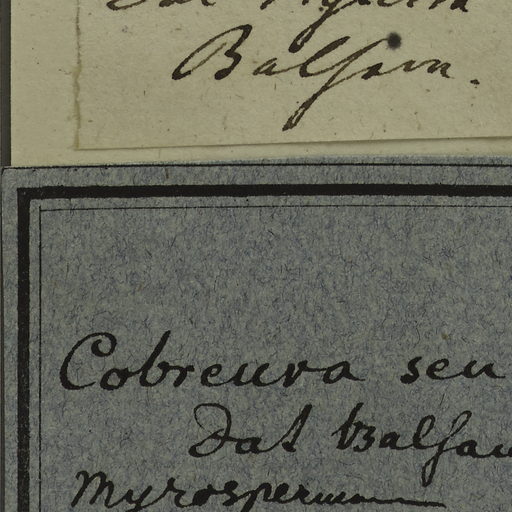 Dat
Balsam.
Cobreuva seu
Dat Balsam
Myrospermum